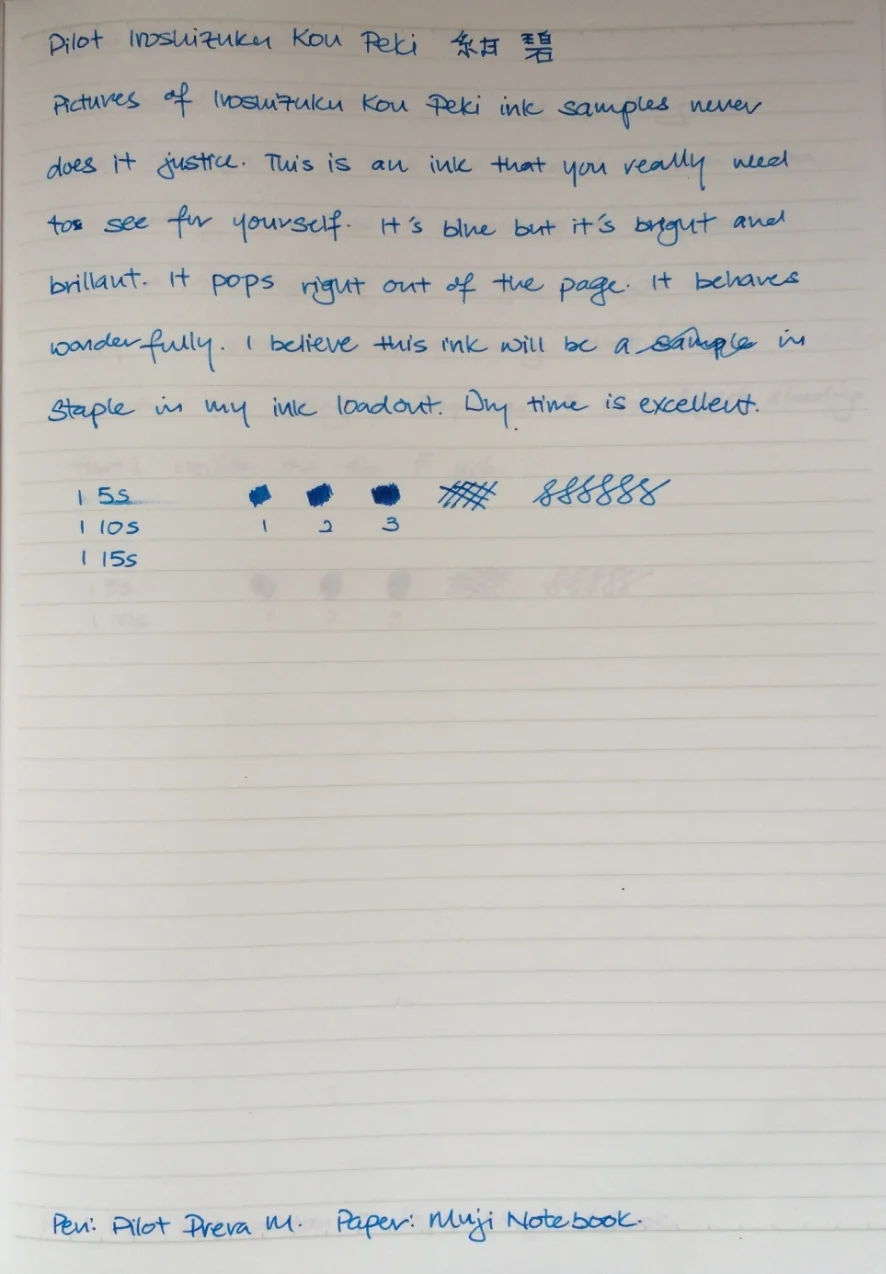 Pilot Iroshizuku Kon Peki 紺碧
Pictures of Iroshizuku Kon Peki ink samples never
does it justice. This is an ink that you really need
to see for yourself. It's blue but it's bright and
brillant. It pops right out of the page. It behaves
wonderfully. I believe this ink will be a sample in
staple in my ink loadout. Dry time is excellent.
| 5s
| 10s
| 15s
1 2 3
Pen: Pilot Prera M. Paper: Muji Notebook.